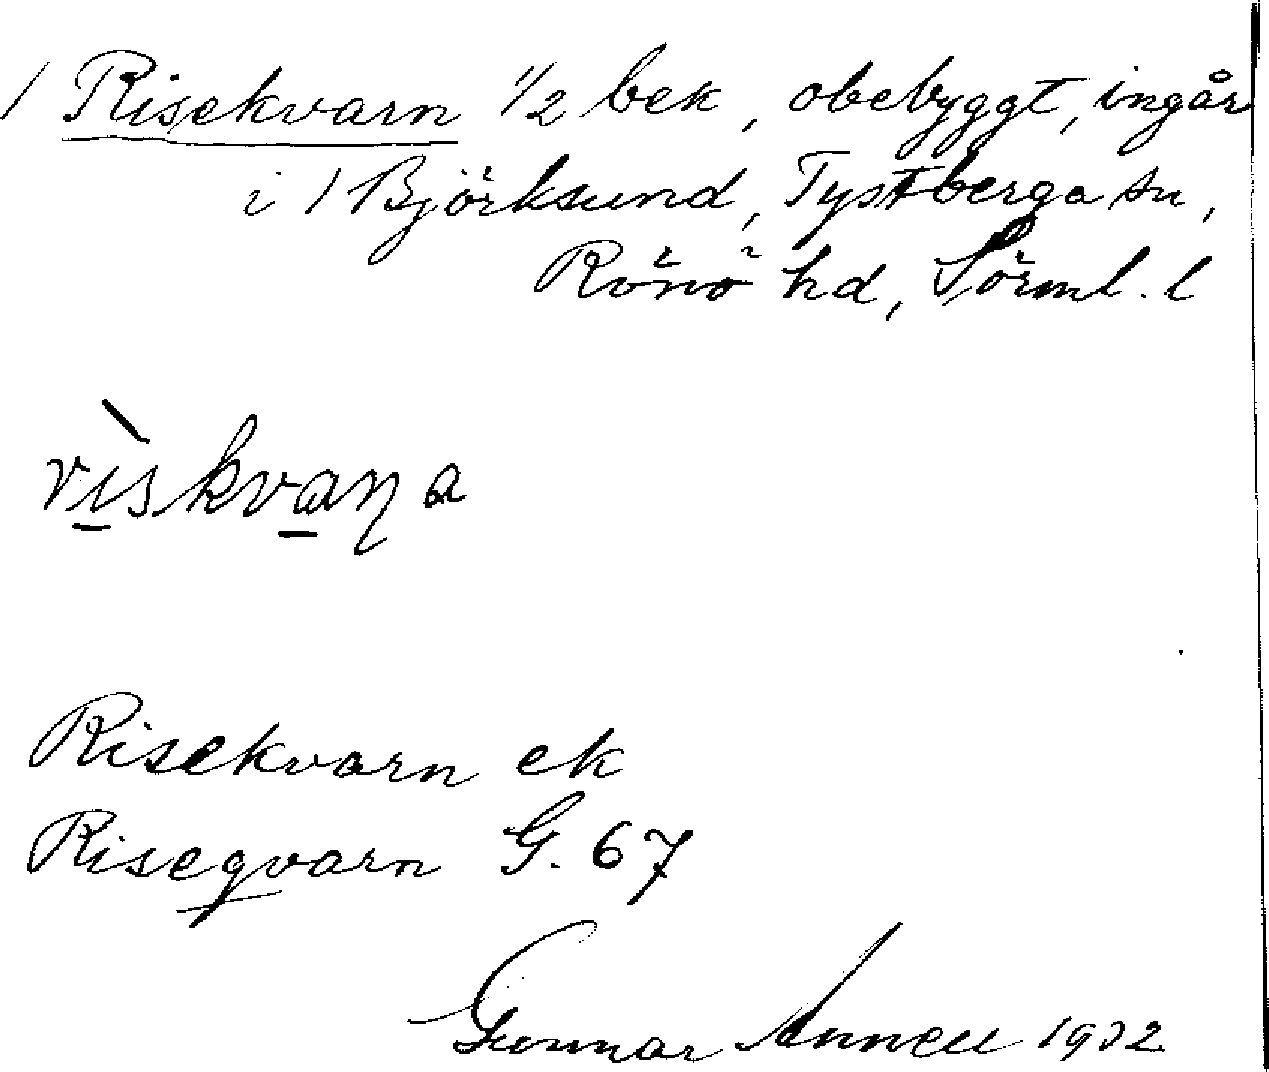 / Risekvarn 1/2 bek, obebyggt, ingår
i / Björksund, Tystberga sn,
Rönö hd, Sörml. l
Risekvarn ek
Riseqvarn G. 67
Gunnar Annell 1932